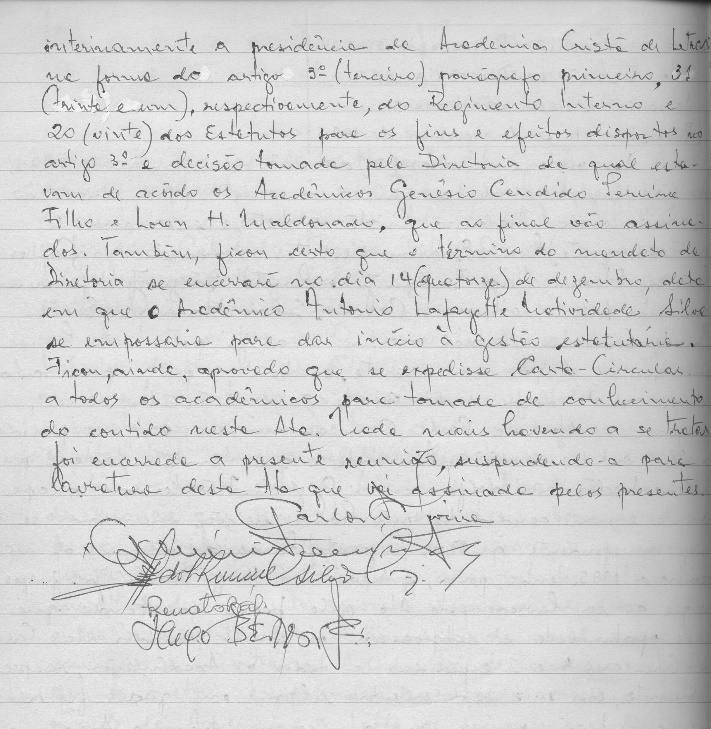 interinamente a presidência da Academia Cristã de Letras
na forma do artigo 3º (terceiro) parágrafo primeiro, 31
(trinta e um), respectivamente, do Regimento Interno e
20 (vinte) dos Estatutos para os fins e efeitos dispostos no
artigo 3º e decisão tomada pela Diretoria da qual esta-
vam de acôrdo os Acadêmicos Genésio Candido Pereira
Filho e Loren H. Maldonado, que ao final vão assina-
dos. Também, ficou certo que o término do mandato da
Diretoria se encerrará no dia 14 (quatorze) de dezembro, data
em que o Acadêmico Antonio Lafayette Natividade Silva
se empossaria para dar início à gestão estatutária.
Ficou, ainda, aprovado que se expedisse Carta-Circular
a todos os acadêmicos para tomada de conhecimento
do contido nesta Ata. Nada mais havendo a se tratar
foi encerrada a presente reunião, suspendendo-a para
lavratura desta Ata que vai assinada pelos presentes.
Carlos
Silva
Renato
Hugo